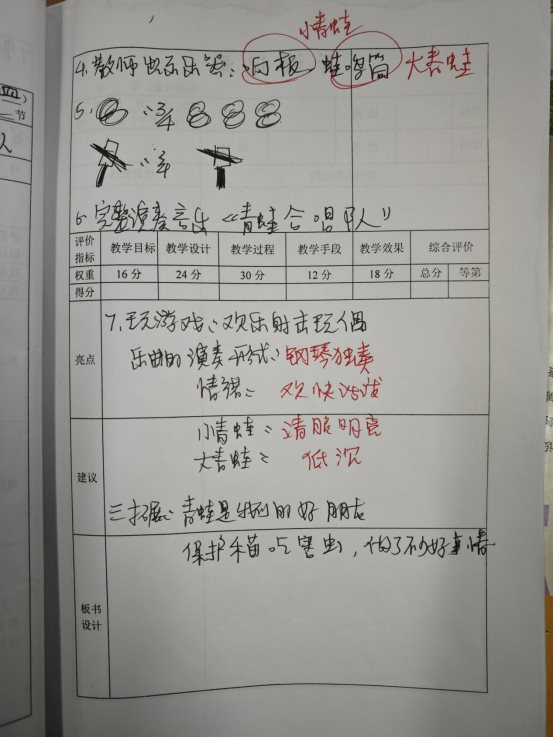 小青蛙
4.教师出示乐器:响板 蛙鸣筒 大青蛙
5. 2/4
2/4
6.完整演奏音乐《青蛙合唱队》
评价指标 教学目标 教学设计 教学过程 教学手段 教学效果 综合评价
权重 16分 24分 30分 12分 18分 总分 等第
得分
亮点
7.玩游戏:欢乐射击玩偶
乐曲的演奏形式:钢琴独奏
情绪: 欢快活泼
建议
小青蛙:清脆明亮
大青蛙: 低沉
三.拓展:青蛙是我们的好朋友
板书设计
保护禾苗吃害虫,做了不少好事情